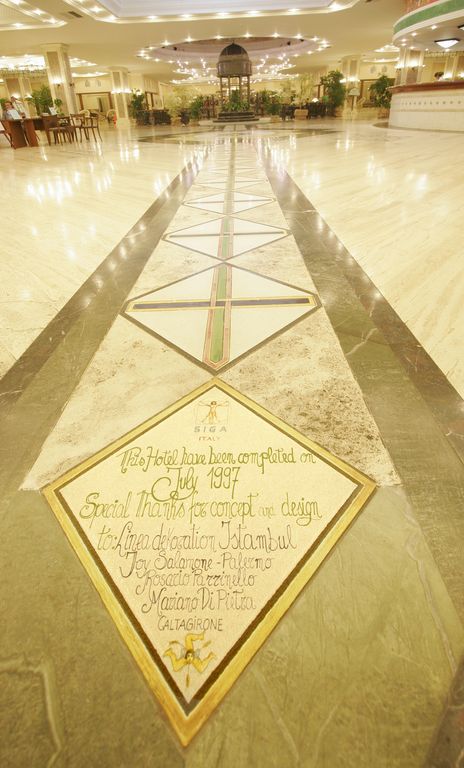 SIGA
ITALY
This Hotel have been completed on
July 1997
Special Thanks for concept and design
to: Linea decoration Istambul
Joy Salamone - Palermo
Rosario Parrinello
Mariano Di Pietra
CALTAGIRONE